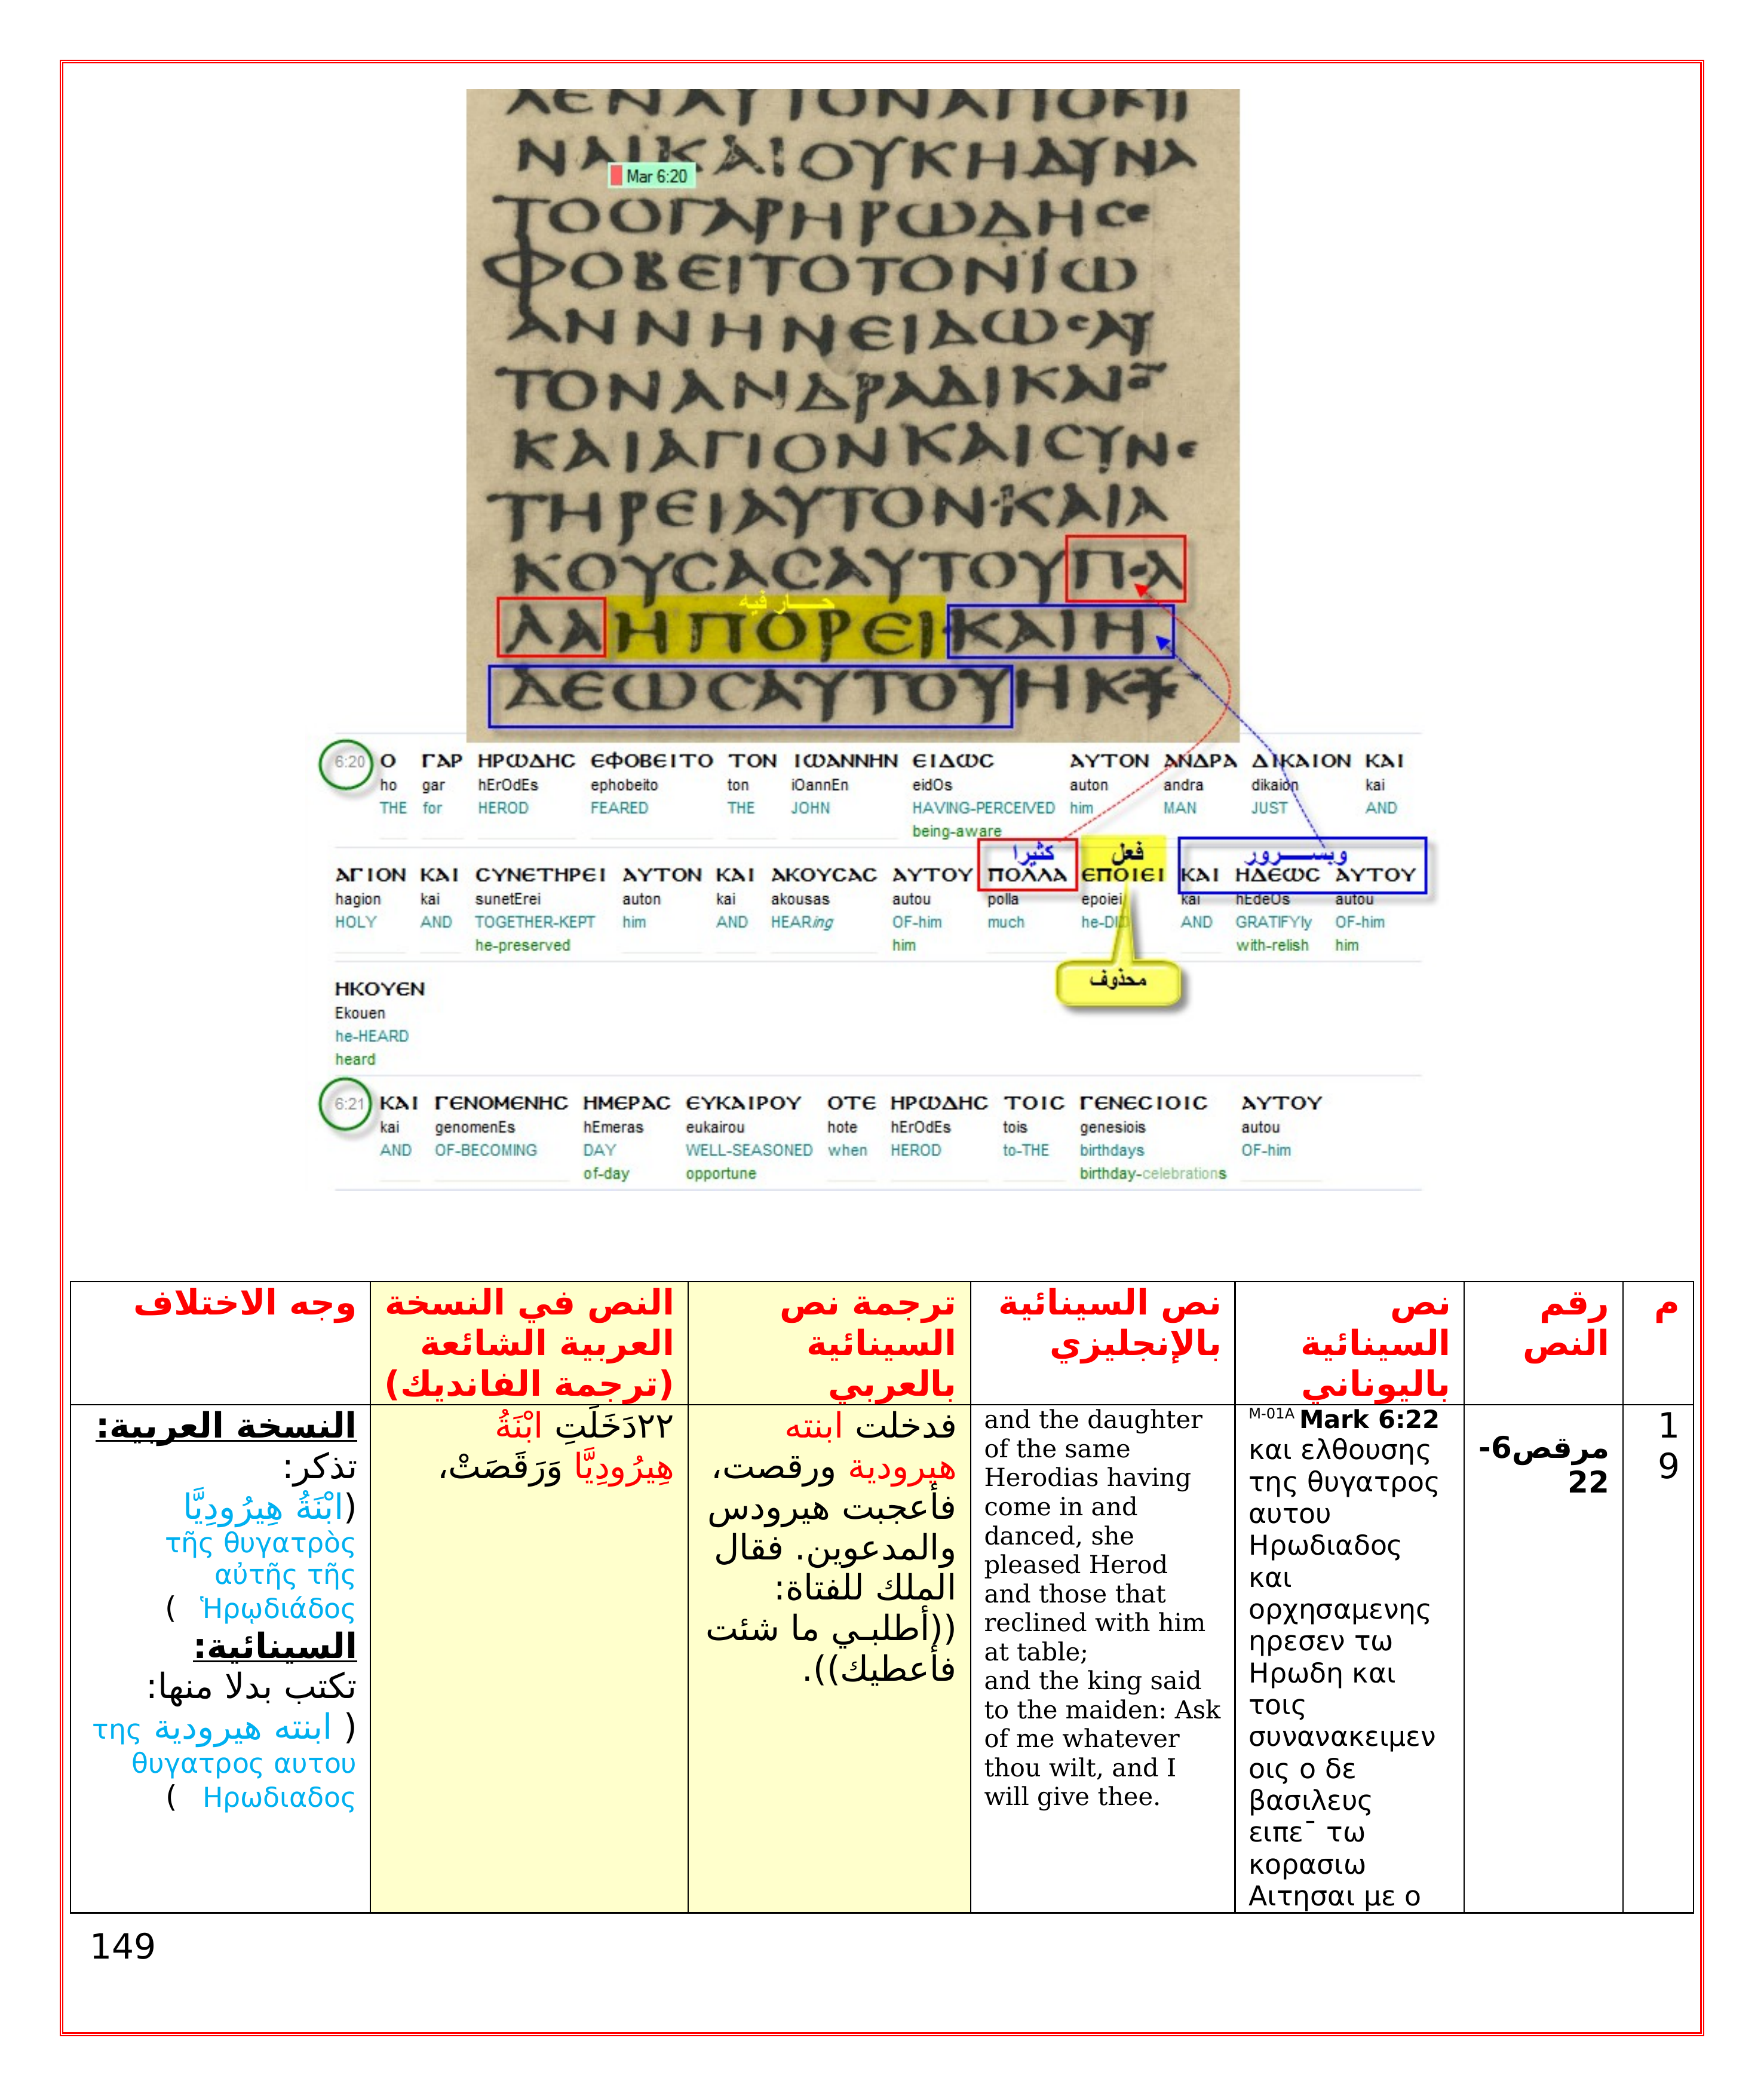 ΛΕΝΑΥΤΟΝΑΠΟΚΤΙ
ΝΑΙΚΑΙΟΥΚΗΔΥΝΑ
Mar 6:20
ΤΟΟΓΑΡΗΡΩΔΗϹΕ
ΦΟΒΕΙΤΟΤΟΝΪΩ
ΑΝΝΗΝΕΙΔΩϹΑΥ
ΤΟΝΑΝΔΡΑΔΙΚΑΙΟ̅
ΚΑΙΑΓΙΟΝΚΑΙϹΥΝΕ
ΤΗΡΕΙΑΥΤΟΝ·ΚΑΙΑ
ΚΟΥϹΑϹΑΥΤΟΥΠΟΛ
حـــار فيه
ΛΑΗΠΟΡΕΙ·ΚΑΙΗ
ΔΕΩϹΑΥΤΟΥΗΚΟΥ
6:20 Ο ΓΑΡ ΗΡΩΔΗϹ ΕΦΟΒΕΙΤΟ ΤΟΝ ΙΩΑΝΝΗΝ ΕΙΔΩϹ ΑΥΤΟΝ ΑΝΔΡΑ ΔΙΚΑΙΟΝ ΚΑΙ
ho gar hErOdEs ephobeito ton iOannEn eidOs auton andra dikaion kai
THE for HEROD FEARED THE JOHN HAVING-PERCEIVED him MAN JUST AND
being-aware
كثيرا فعل وبســـرور
ΑΓΙΟΝ ΚΑΙ ϹΥΝΕΤΗΡΕΙ ΑΥΤΟΝ ΚΑΙ ΑΚΟΥϹΑϹ ΑΥΤΟΥ ΠΟΛΛΑ ΕΠΟΙΕΙ ΚΑΙ ΗΔΕΩϹ ΑΥΤΟΥ
hagion kai sunetErei auton kai akousas autou polla epoiei kai hEdeOs autou
HOLY AND TOGETHER-KEPT him AND HEARing OF-him much he-DID AND GRATIFYly OF-him
he-preserved him with-relish him
محذوف
ΗΚΟΥΕΝ
Ekouen
he-HEARD
heard
6:21 ΚΑΙ ΓΕΝΟΜΕΝΗϹ ΗΜΕΡΑϹ ΕΥΚΑΙΡΟΥ ΟΤΕ ΗΡΩΔΗϹ ΤΟΙϹ ΓΕΝΕϹΙΟΙϹ ΑΥΤΟΥ
kai genomenEs hEmeras eukairou hote hErOdEs tois genesiois autou
AND OF-BECOMING DAY WELL-SEASONED when HEROD to-THE birthdays OF-him
of-day opportune birthday-celebrations
م
رقم
النص
نص
السينائية
باليوناني
نص السينائية
بالإنجليزي
ترجمة نص
السينائية
بالعربي
النص في النسخة
العربية الشائعة
(ترجمة الفانديك)
وجه الاختلاف
1
9
مرقص6-
22
M-01A Mark 6:22
και ελθουσης
της θυγατρος
αυτου
Ηρωδιαδος
και
ορχησαμενης
ηρεσεν τω
Ηρωδη και
τοις
συνανακειμεν
οις ο δε
βασιλευς
ειπε¯ τω
κορασιω
Αιτησαι με ο
and the daughter
of the same
Herodias having
come in and
danced, she
pleased Herod
and those that
reclined with him
at table;
and the king said
to the maiden: Ask
of me whatever
thou wilt, and I
will give thee.
فدخلت ابنته
هيرودية ورقصت،
فأعجبت هيرودس
والمدعوين. فقال
الملك للفتاة:
((أطلبـي ما شئت
فأعطيك)).
٢٢دَخَلَتِ ابْنَةُ
هِيرُودِيَّا وَرَقَصَتْ،
النسخة العربية:
تذكر:
(ابْنَةُ هِيرُودِيَّا
τῆς θυγατρὸς
αὐτῆς τῆς
Ἡρῳδιάδος )
السينائية:
تكتب بدلا منها:
( ابنته هيرودية της
θυγατρος αυτου
Ηρωδιαδος )
149